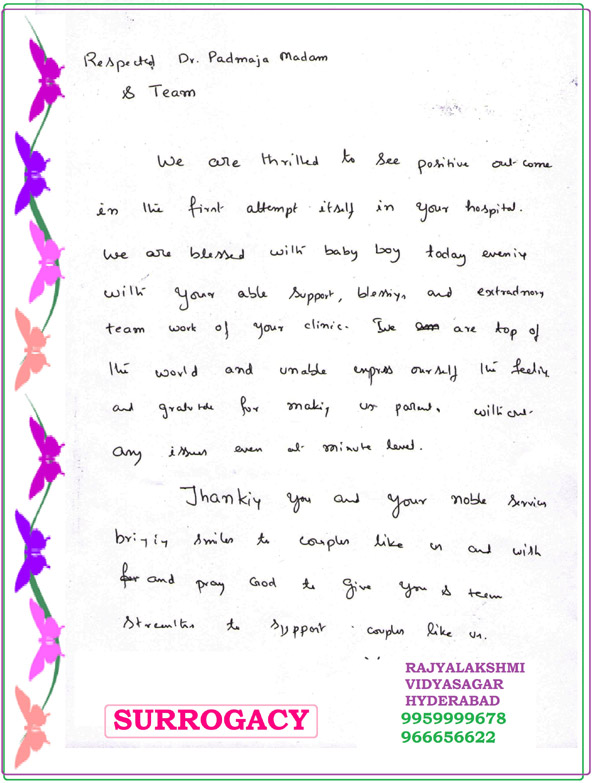 Respected Dr. Padmaja Madam
& Team
We are thrilled to see positive out come
in the first attempt itself in your hospital.
We are blessed with baby boy today evening
with your able support, blessings and extradnory
team work of your clinic. We are top of
the world and unable express ourself the feeling
and gratitude for making us parents without
any issues even at minute level.
Thanking you and your noble services
bringing smiles to couples like us and wish
for and pray God to give you & team
to support couples like us.
RAJYALAKSHMI
VIDYASAGAR
HYDERABAD
9959999678
966656622
SURROGACY